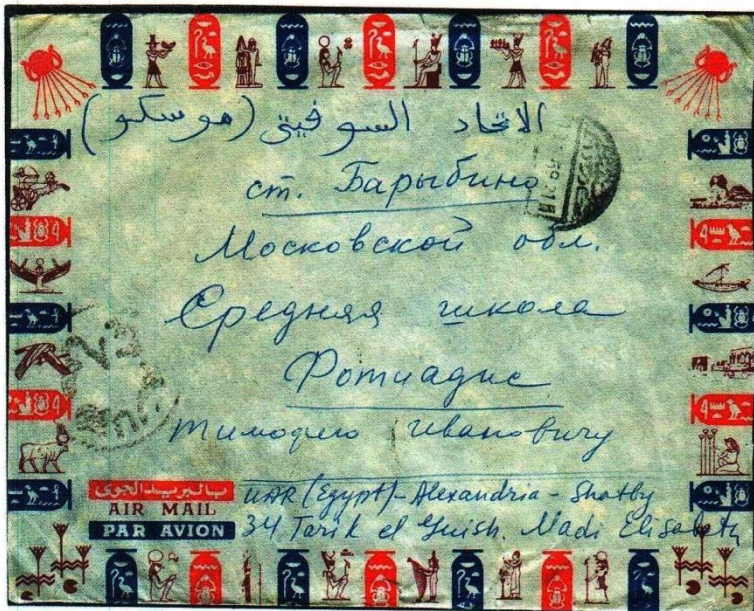 الاتحاد السوفيتى (موسكو)
ст. Барыбино
Московской обл.
Средняя школа
Фотиадис
Тимофею Ивановичу
بالبريد الجوى
AIR MAIL
PAR AVION
UAR (Egypt) - Alexandria - Shatby
34 Tarik el Guish. Madi Elisabeth